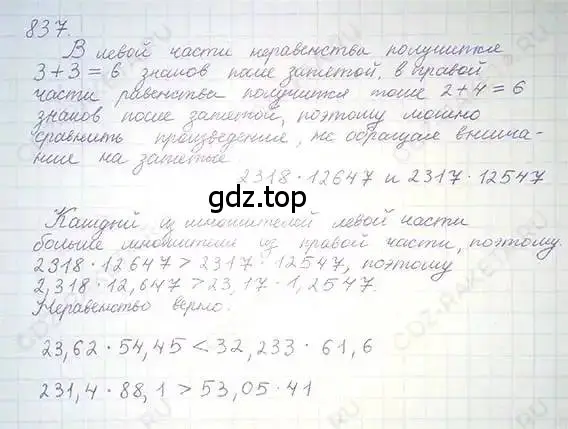 837.
В левой части неравенства получится
3+3=6 знаков после запятой, в правой
части равенства получится тоже 2+4=6
знаков после запятой, поэтому можно
сравнить произведения, не обращая внима-
ние на запятые
2318·12647 и 2317·12547
gdz.top
Каждый из множителей левой части
больше множителя из правой части, поэтому
2318·12647>2317·12547, поэтому
2,318·12,647>23,17·1,2547.
Неравенство верно.
23,62·54,45<32,233·61,6
231,4·88,1>53,05·41